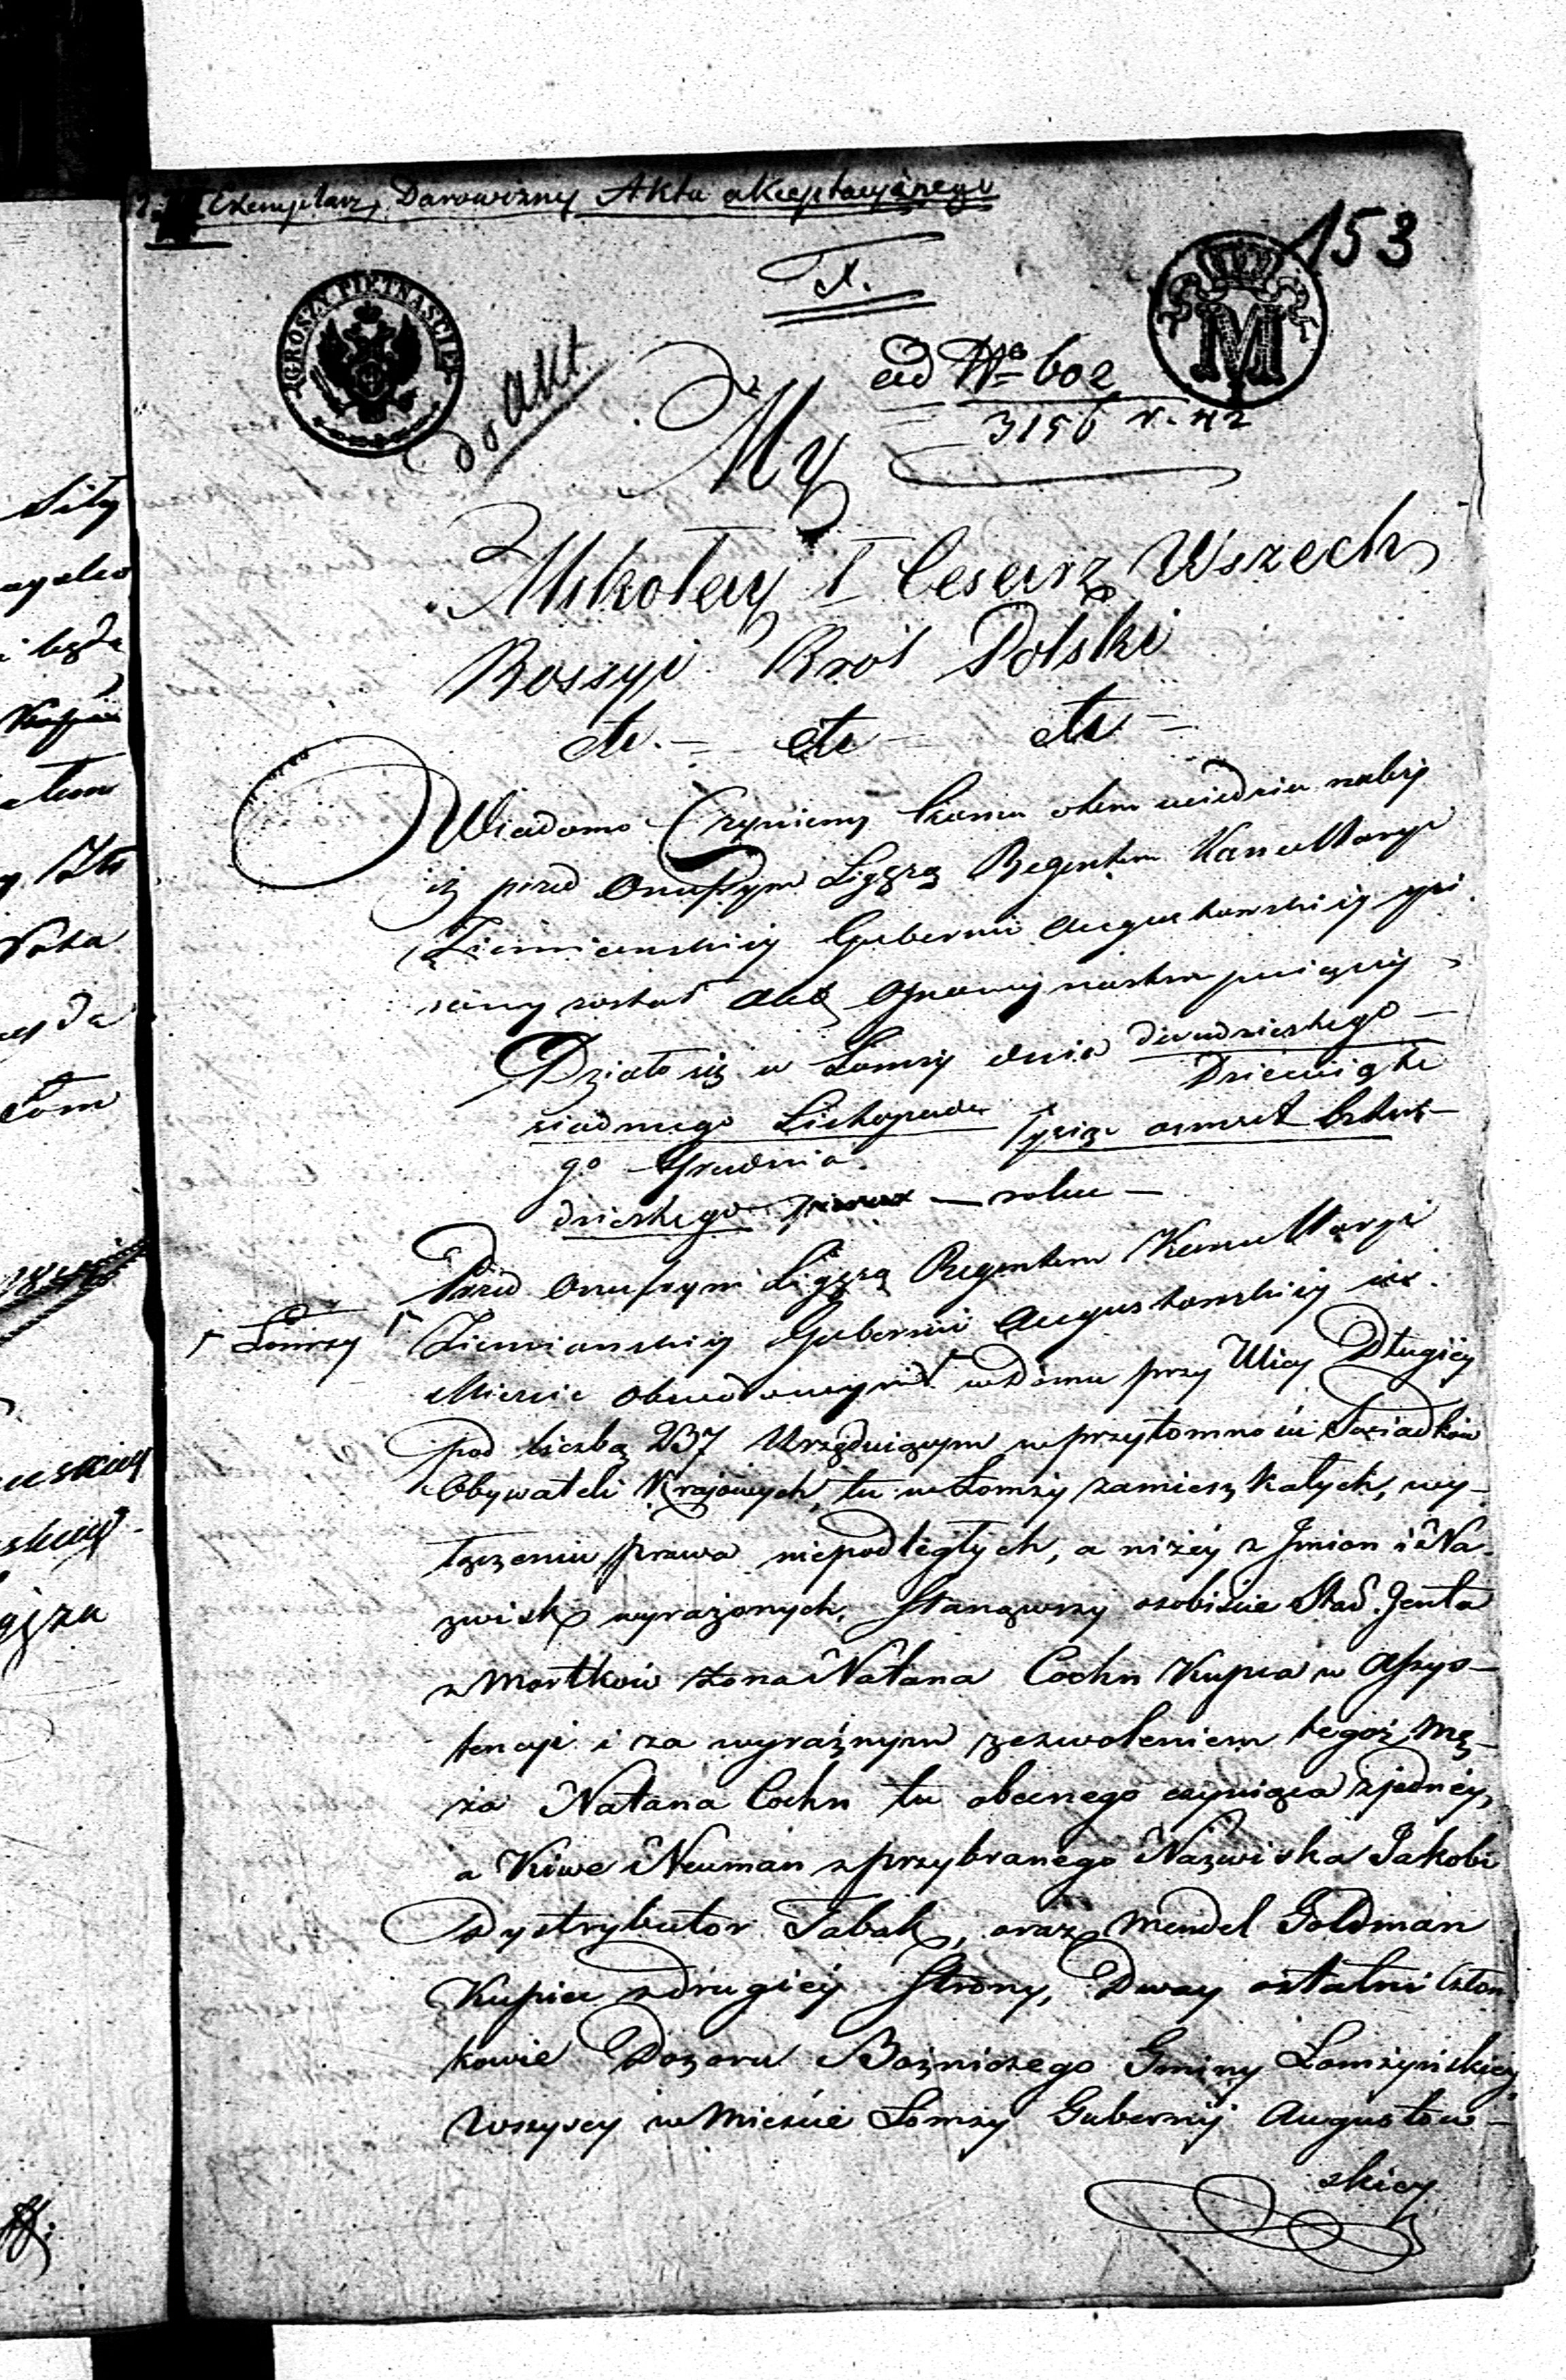 Exemplarz Darowizny Aktu akceptacyinego
153
GROSZY PIĘTNAŚCIE
M
do akt
ad No 602
3156
My
Mikołay I Cesarz Wszech
Rossyi Krol Polski
etc. – etc – etc –
Wiadomo Czyniemy komu otem wiedzieć należy
iż przed Onufrym Ligęzą Regentem Kancellaryi
Ziemiańskiéy Gubernii Augustowskiéy spi
sany został Akt osnowy następuiącéy –
Działo się w Łomży dnia dwudziestego –
Dziewięte
siódmego Listopada Tysiąc osmset Czter–
go Grudnia
dziestego — roku —
Przed Onufrym Ligęzą Regentem Kancellaryi
Ziemiańskiéy Gubernii Augustowskiéy w
Łomży
Mieście Obwodowym w Domu przy Ulicy Długiéy
pod liczbą 237 Urzęduiącym w przytomności Swiadków
Obywateli Krajowych, tu w Łomży zamieszkałych, wy–
łączeniu prawa niepodległych, a niżéy z Jmion i Na–
zwisk wyrażonych, Stanąwszy osobiście Star. Jenta
z Mortków żona Natana Cochn Kupca w Assys–
tencyi i za wyraźnym zezwoleniem tegoż Mę–
ża Natana Cochn tu obecnego czyniąca z jednéy,
a Kiwe Neuman z przybranego Nazwiska Jakobi
Dystrybutor Tabak, oraz Mendel Goldman
Kupiec z drugiéy Strony, Dway ostatni Człon
kowie Dozoru Bożniczego Gminy Łomżyńskiéy
wszyscy w Mieście Łomży Gubernij Augustow–
skiey